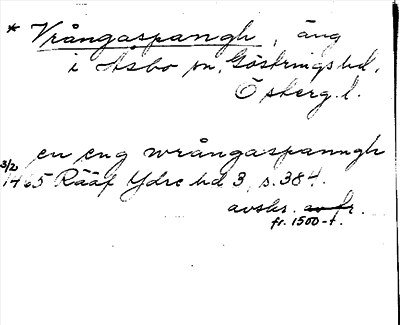 * Vrångaspangh, äng
i Asbo sn, Göstrings hd,
Österg. l.
en eng wrångaspanngh
3/2 1465 Rääf Ydre hd 3, s. 384.
avskr. av fr.
fr. 1500-t.